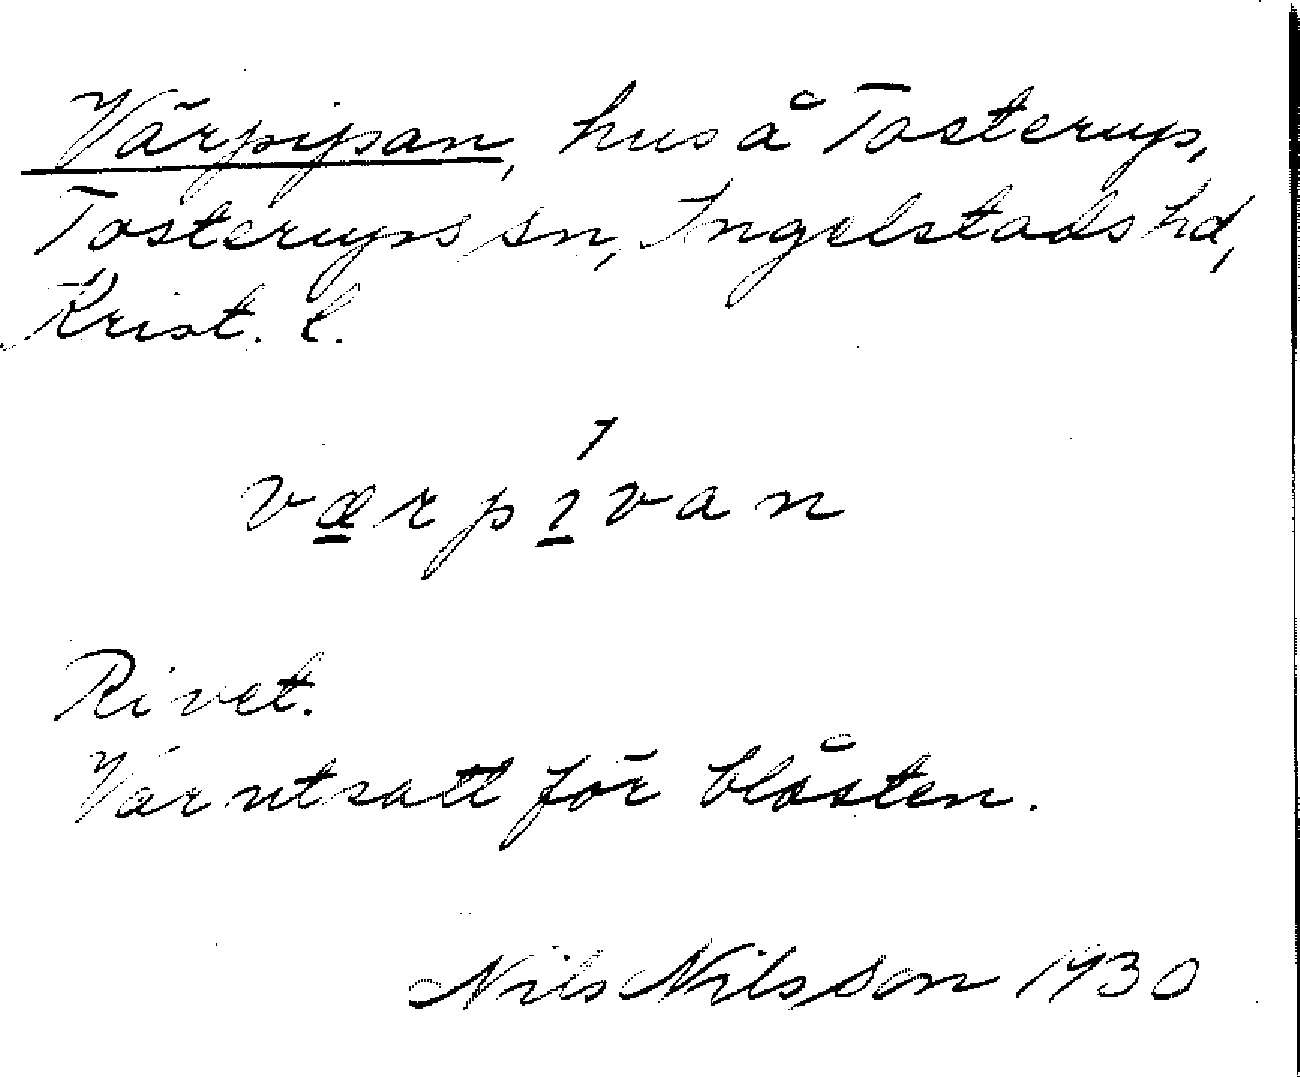 Värpipan, hus å Tosterup,
Tosterups sn, Ingelstads hd,
Krist. l.
værpívan
Rivet.
Var utsatt för blåsten.
Nils Nilsson 1930